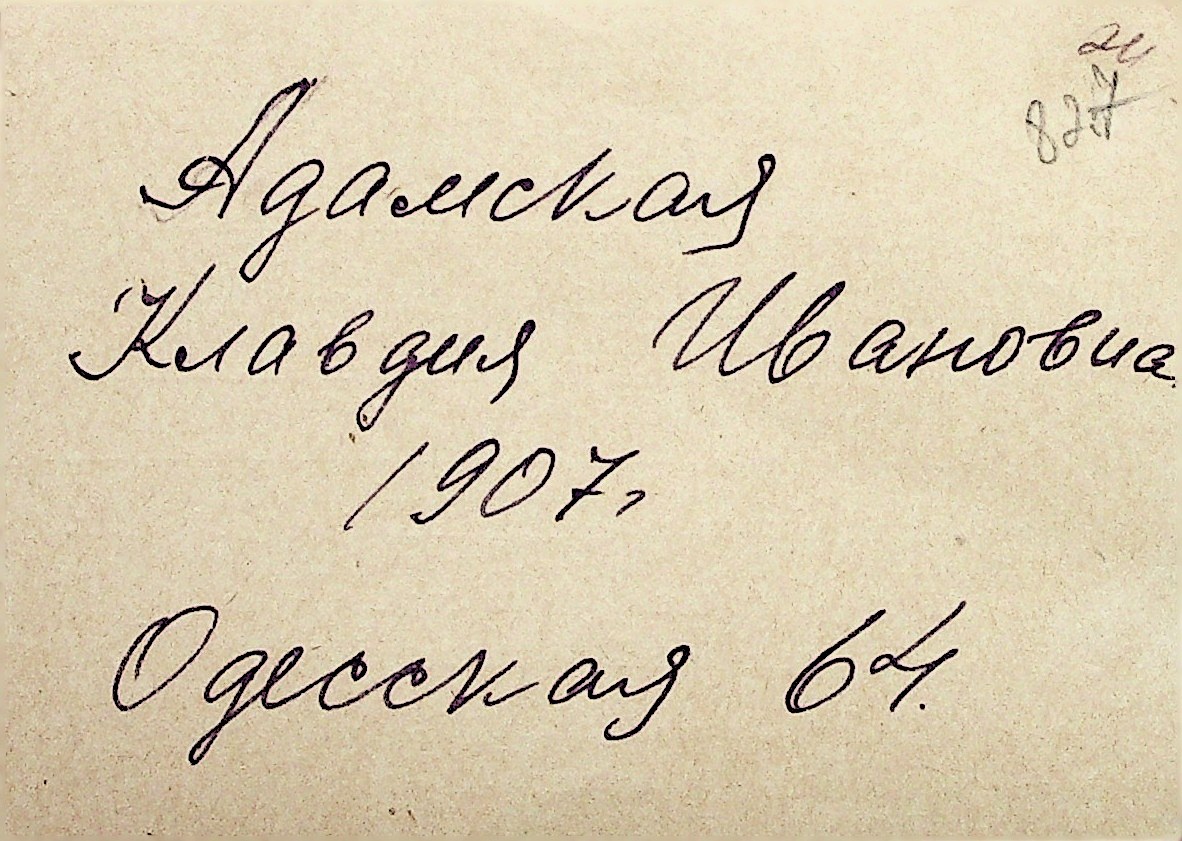 827
Адамская
Клавдия Ивановна
1907г
Одесская 64.